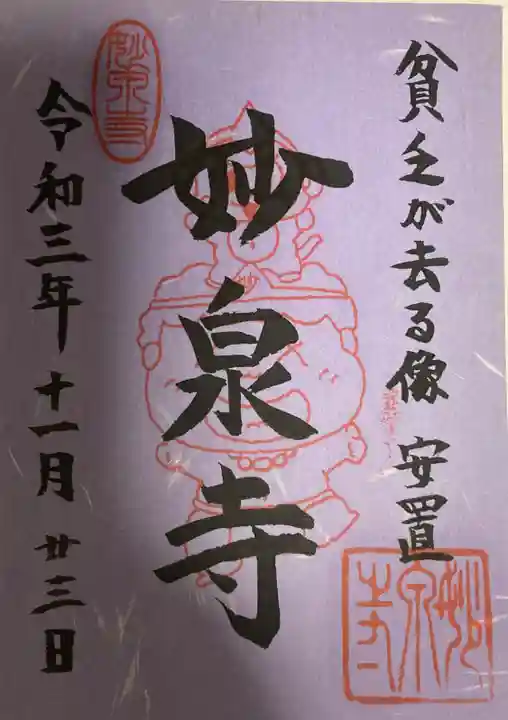 貧乏が去る像 安置
妙泉寺
令和三年十一月廿三日
妙泉寺
妙泉寺